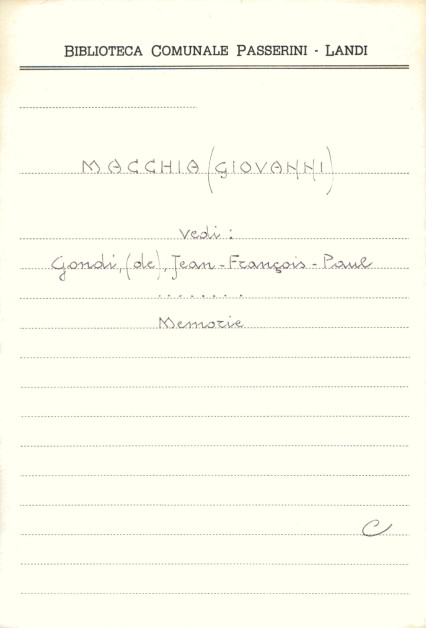 BIBLIOTECA COMUNALE PASSERINI - LANDI
MACCHIA (GIOVANNI)
Vedi :
Gondi, (de), Jean-François-Paul
. . . . . . . .
Memorie
C